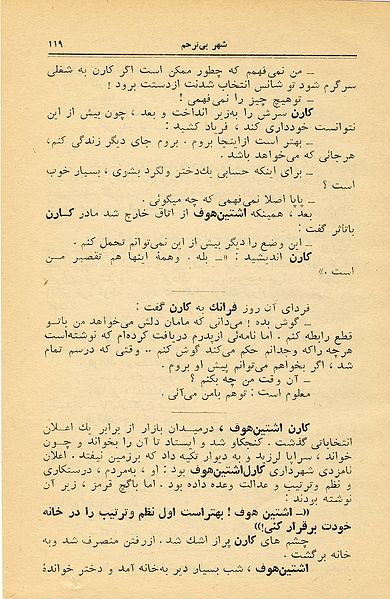 شهر بی‌ترحم ۱۱۹
ــ من نمی‌فهمم که چطور ممکن است اگر کارن به شغلی
سرگرم شود تو شانس انتخاب شدنت ازدست برود !
ــ توهیچ چیز را نمی‌فهمی !
کارن سرش را به‌زیر انداخت و بعد ، چون بیش از این
نتوانست خودداری کند ، فریاد کشید :
ــ بهتر است ازاینجا بروم . بروم جای دیگر زندگی کنم،
هرجائی که می‌خواهد باشد .
ــ برای اینکه حسابی یك‌دختر ولگرد بشوی ، بسیار خوب
است ؟
ــ پاپا اصلا نمی‌فهمی که چه میگوئی .
بعد ، همینکه اشتین‌هوف از اتاق خارج شد مادر کـارن
باتأثر گفت :
ــ این وضع را دیگر بیش از این نمی‌توانم تحمل کنم .
کارن اندیشید : «ــ بله . وهمهٔ اینها هم تقصیر مـن
است .»
فردای آن روز فرانك به کارن گفت :
ــ گوش بده ! می‌دانی که مامان دلش می‌خواهد من باتـو
قطع رابطه کنم . اما نامه‌ئی ازپدرم دریافت کرده‌ام که نوشته‌است
هرچه راکه وجدانم حکم می‌کند گوش کنم .. وقتی که درسم تمام
شد ، اگر بخواهم می‌توانم پیش او بروم .
ــ آن وقت من چه بکنم ؟
معلوم است : توهم بامن می‌آئی .
کارن اشتین‌هوف ، درمیـدان بازار از برابر یك اعـلان
انتخاباتی گذشت . کنجکاو شد و ایستاد تا آن را بخواند و چـون
خواند ، سراپا لرزید و به دیوار تکیه داد که برزمین نیفتد . اعلان
نامزدی شهرداری کارل‌اشتین‌هوف بود : او ، به‌مردم ، درستکاری
و نظم وترتیب و عدالت وعده داده بود. اما باگچ قرمز ، زیر آن
نوشته بودند :
«ــ اشتین هوف ! بهتراست اول نظم وترتیب را در خانه
خودت برقرار کنی!»
چشم های کارن پراز اشك شد . ازرفتن منصرف شد وبه
خانه برگشت .
اشتین‌هوف ، شب بسیار دیر به‌خانه آمد و دختر خواندهٔ